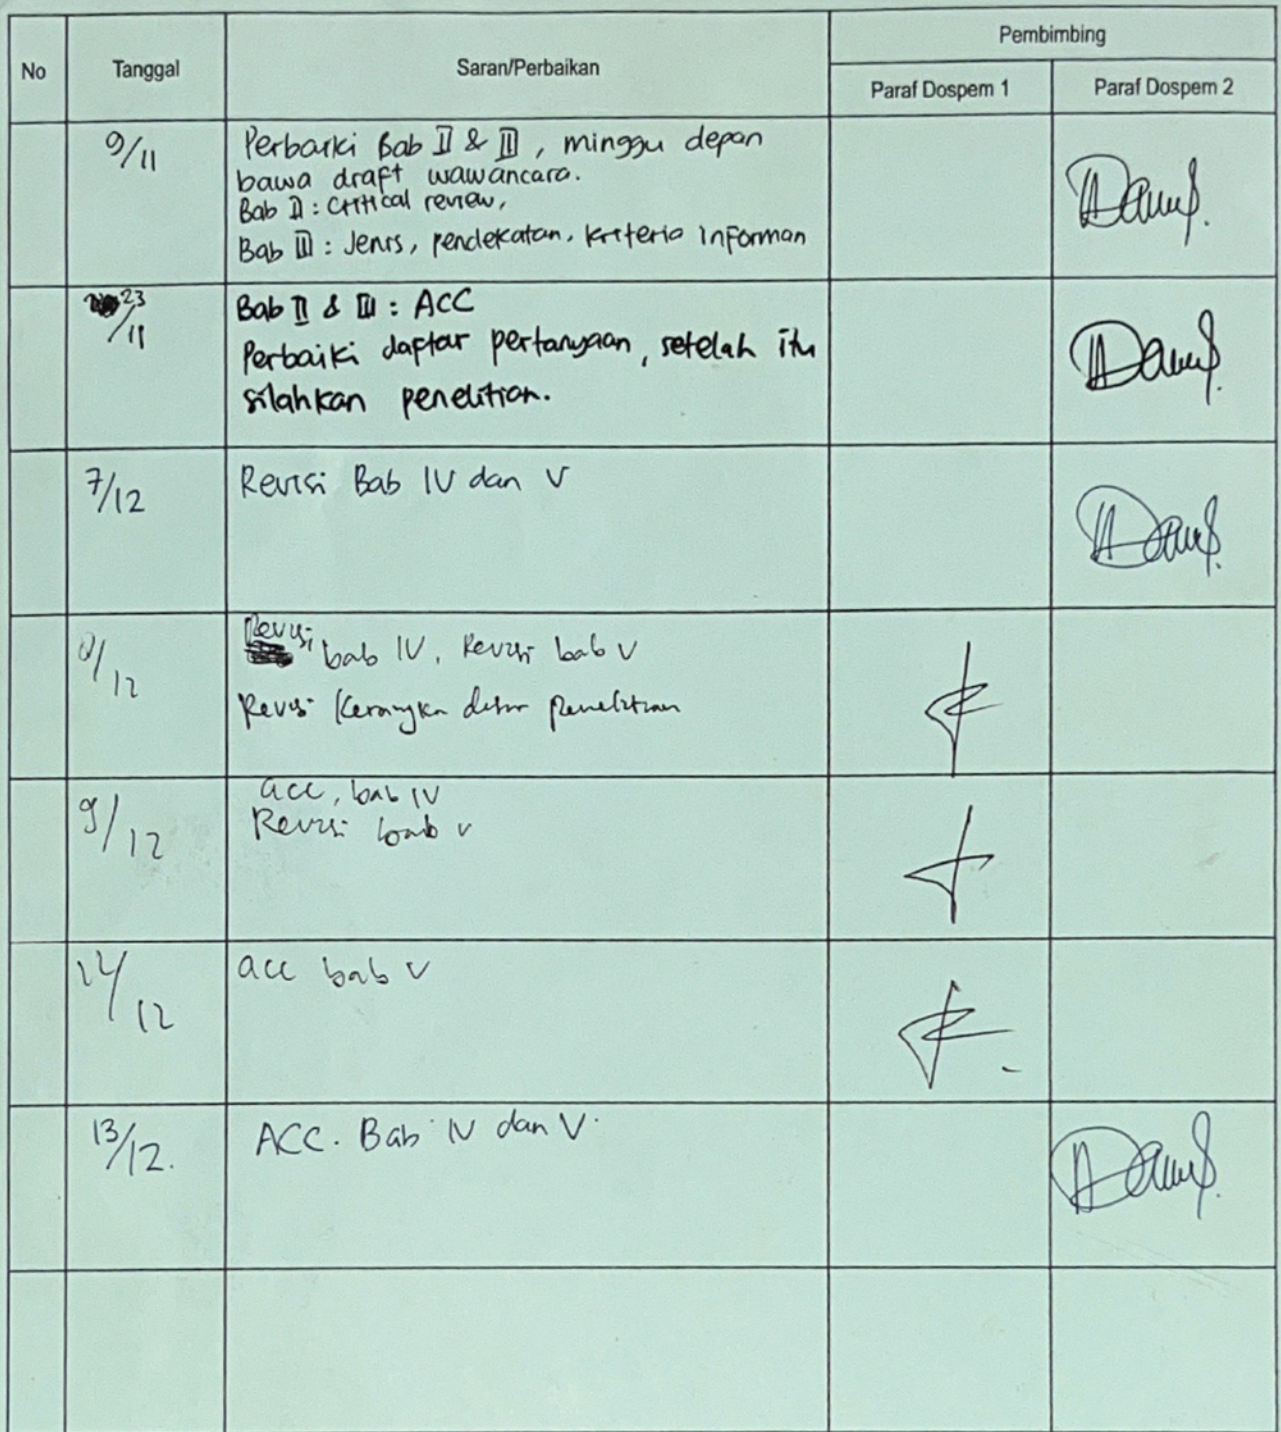 Pembimbing
No Tanggal Saran/Perbaikan
Paraf Dospem 1 Paraf Dospem 2
9/11 Perbaiki Bab II & III, minggu depan
bawa draft wawancara.
Bab II : Critical review,
Bab III : Jenis, pendekatan, kriteria informan
23/11 Bab II & III : ACC
Perbaiki daftar pertanyaan, setelah itu
silahkan penelitian.
7/12 Revisi Bab IV dan V
8/12 Revisi bab IV, Revisi bab V
Revisi Kerangka dasar penelitian
9/12 acc, bab IV
Revisi bab V
/12 acc bab V
13/12. ACC. Bab IV dan V.